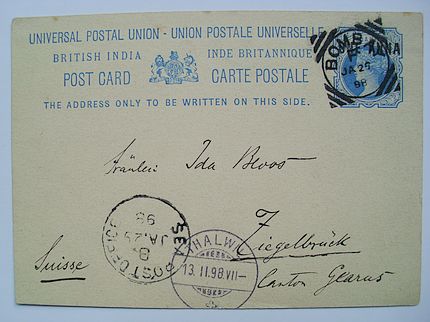 UNIVERSAL POSTAL UNION - UNION POSTALE UNIVERSELLE
BRITISH INDIA INDE BRITANNIQUE
POST CARD CARTE POSTALE
THE ADDRESS ONLY TO BE WRITTEN ON THIS SIDE.
BOMBAY
JA 26
98
ANNA
Fräulein Ida
Ziegelbrück
Canton Glarus
Suisse
SEA POST OFFICE
B
JA. 29
98
THALWIL
13. II. 98 VII–